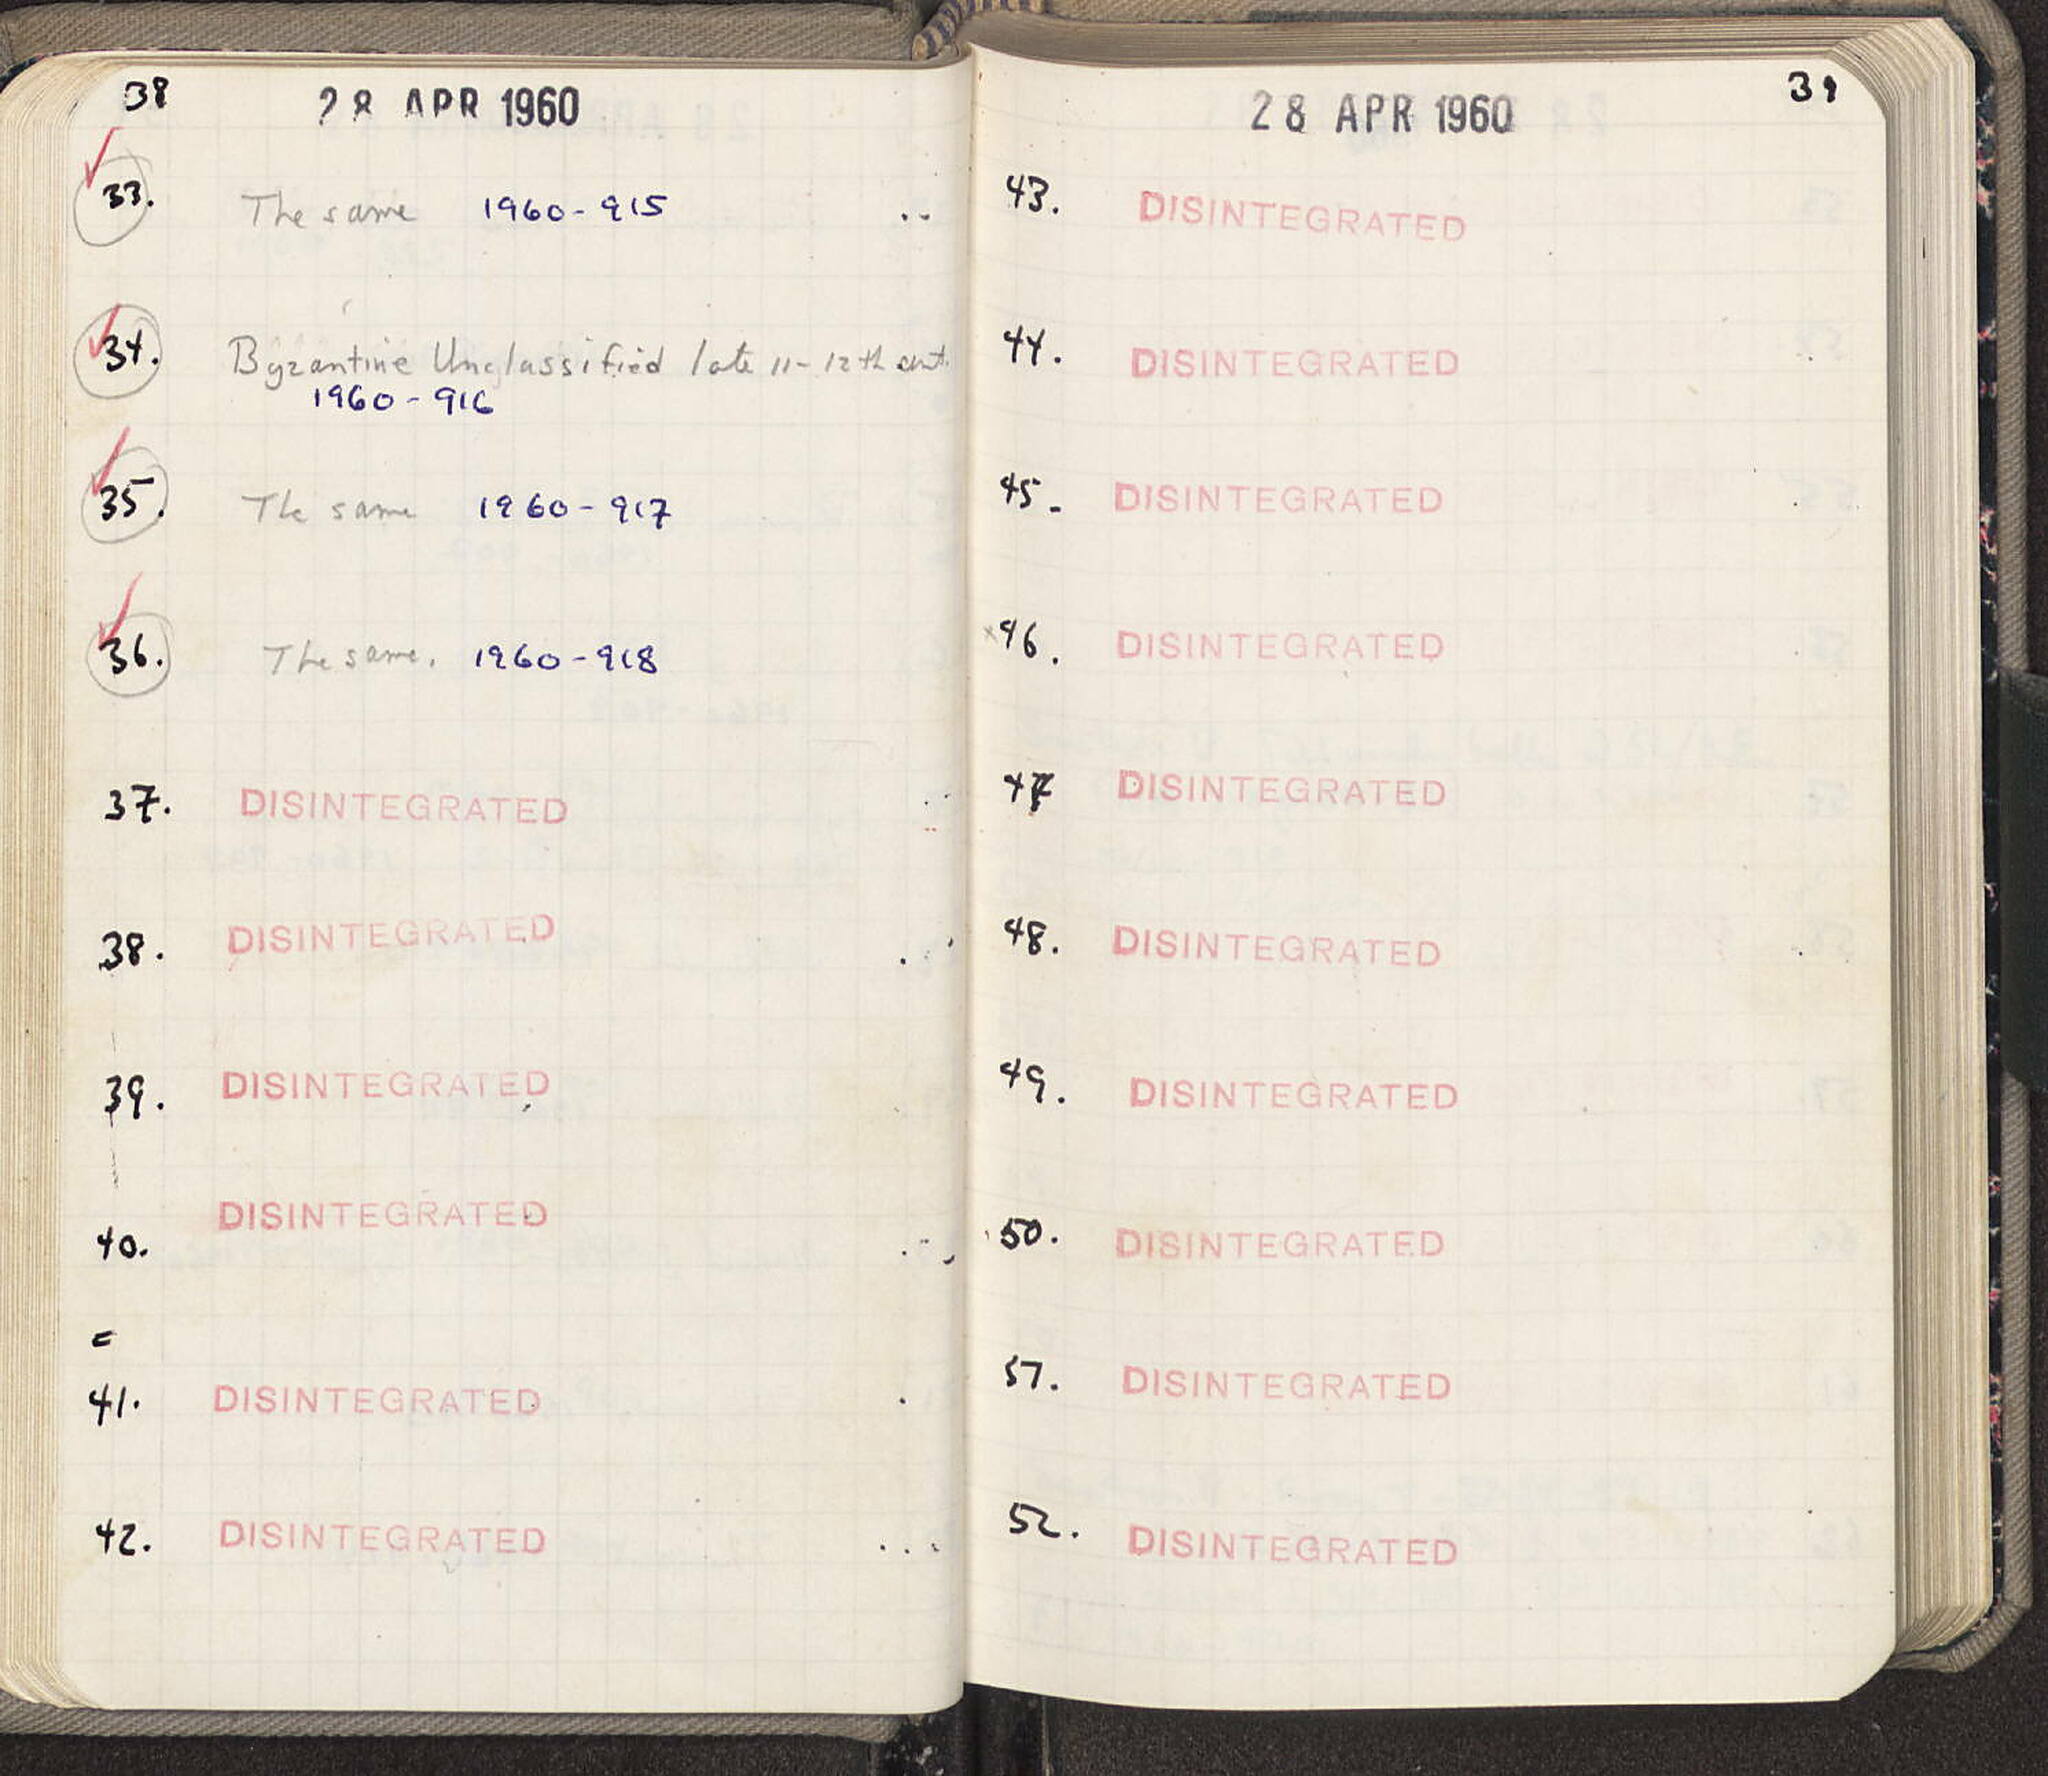 38
28 APR 1960
33. The same 1960-915
34. Byzantine Unclassified late 11-12th cent.
1960-916
35. The same 1960-917
36. The same. 1960-918
37. DISINTEGRATED
38. DISINTEGRATED
39. DISINTEGRATED
40. DISINTEGRATED
=
41. DISINTEGRATED
42. DISINTEGRATED
39
28 APR 1960
43. DISINTEGRATED
44. DISINTEGRATED
45. DISINTEGRATED
46. DISINTEGRATED
47 DISINTEGRATED
48. DISINTEGRATED
49. DISINTEGRATED
50. DISINTEGRATED
51. DISINTEGRATED
52. DISINTEGRATED